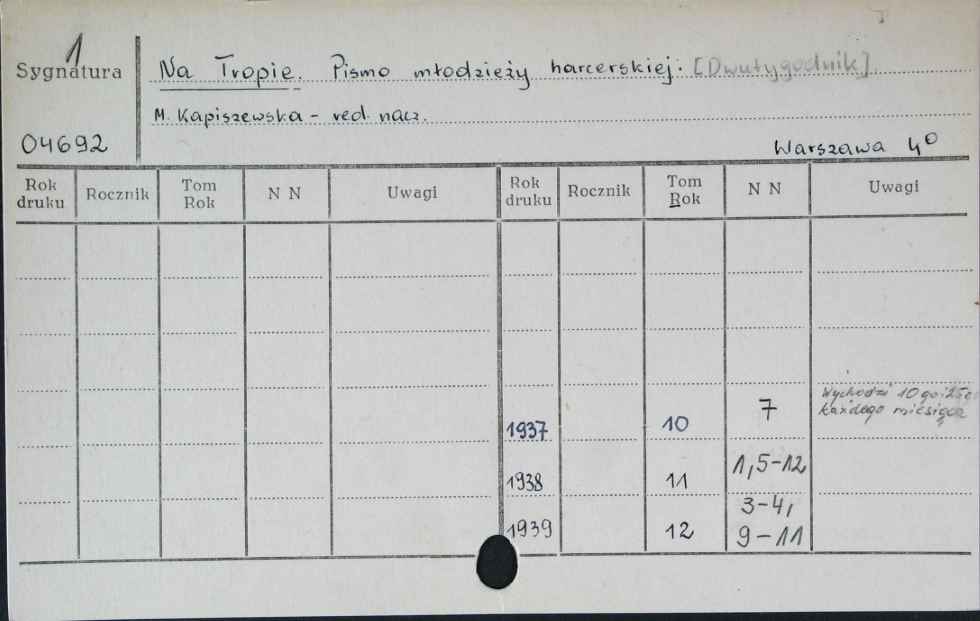 1
Sygnatura
Na Tropie. Pismo młodzieży harcerskiej. [Dwutygodnik]
M. Kapiszewska – red. nacz.
04692
Warszawa 4º
Rok druku Rocznik Tom Rok N N Uwagi Rok druku Rocznik Tom Rok N N Uwagi
Wychodzi 10 go i 25 go
każdego miesiąca
1937 10 7
1938 11 1,5-12
3-4,
1939 12 9-11